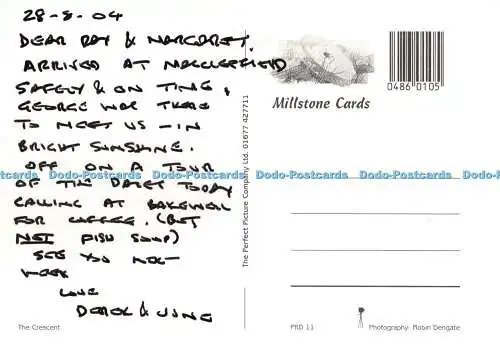 28-8-04
DEAR RAY & MARGARET,
ARRIVED AT MACCLESFIELD
SAFELY & ON TIME,
GEORGE WAS THERE
TO MEET US - IN
BRIGHT SUNSHINE.
OFF ON A TOUR
OF THE DALES TODAY
CALLING AT BAKEWELL
FOR COFFEE. (BUT
NOT FISH SOUP)
SEE YOU NEXT
WEEK
LOVE
DEREK & JUNE
The Crescent
The Perfect Picture Company Ltd. 01677 427711
0486 0105
Millstone Cards
Dodo-Postcards Dodo-Postcards Dodo-Postcards Dodo-Postcards Dodo-Postcards
PKD 11
Photography: Robin Dengate